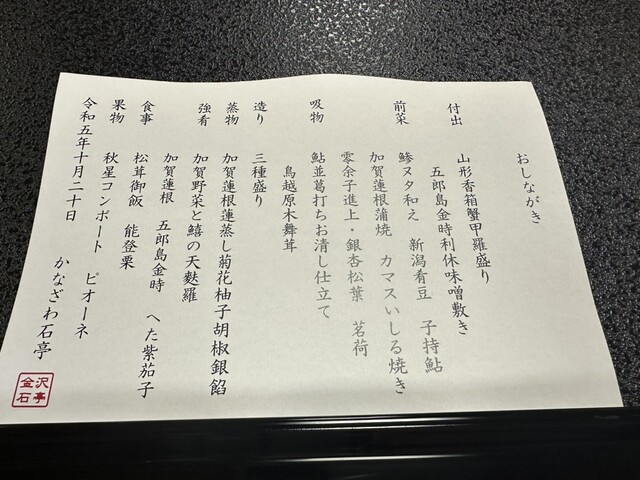 おしながき
付出　山形香箱蟹甲羅盛り
五郎島金時利休味噌敷き
前菜　鯵ヌタ和え　新潟肴豆　子持鮎
加賀蓮根蒲焼　カマスいしる焼き
零余子進上・銀杏松葉　茗荷
吸物　鮎並葛打ちお清し仕立て
鳥越原木舞茸
造り　三種盛り
蒸物　加賀蓮根蓮蒸し菊花柚子胡椒銀餡
強肴　加賀野菜と鱚の天麩羅
加賀蓮根　五郎島金時　へた紫茄子
食事　松茸御飯　能登栗
果物　秋星コンポート　ピオーネ
令和五年十月二十日　かなざわ石亭
金沢
石亭